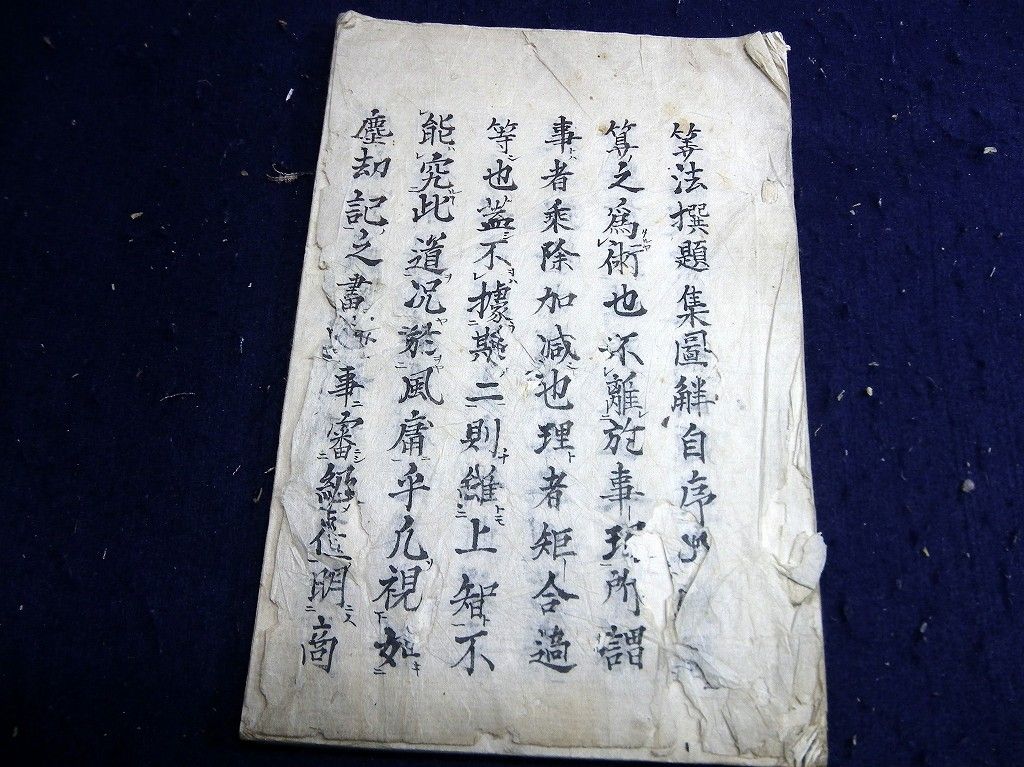 筭法撰題集圖觧自序
算之爲術也不離於事理所謂
事者乘除加减也理者矩合適
等也蓋不據斯二則雖上智不
能究此道况於風庸乎凡視如
塵劫記之書 事審 位明商